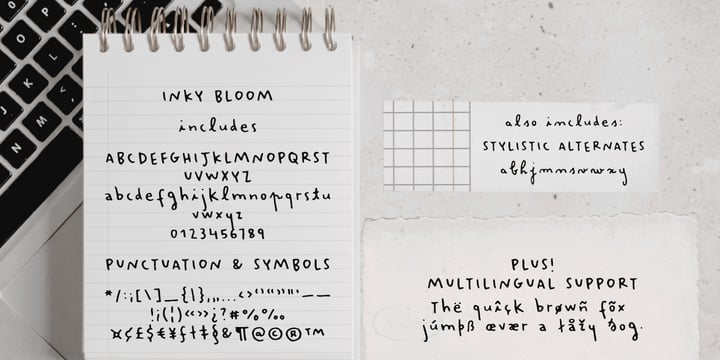 INKY BLOOM
includes
ABCDEFGHIJKLMNOPQRST
UVWXYZ
abcdefghijklmnopqrstu
vwxyz
0123456789
PUNCTUATION & SYMBOLS
*/:;[\]_{|},,,...‹›""''""–—
!¡(¦)«»>¿?#%‰
¤¢£$€¥ƒ†‡§&¶@©®™
also includes:
STYLISTIC ALTERNATES
abhjmnsvwxy
PLUS!
MULTILINGUAL SUPPORT
Thë quîçk brøwñ fõx
júmpß ævær a łåžy